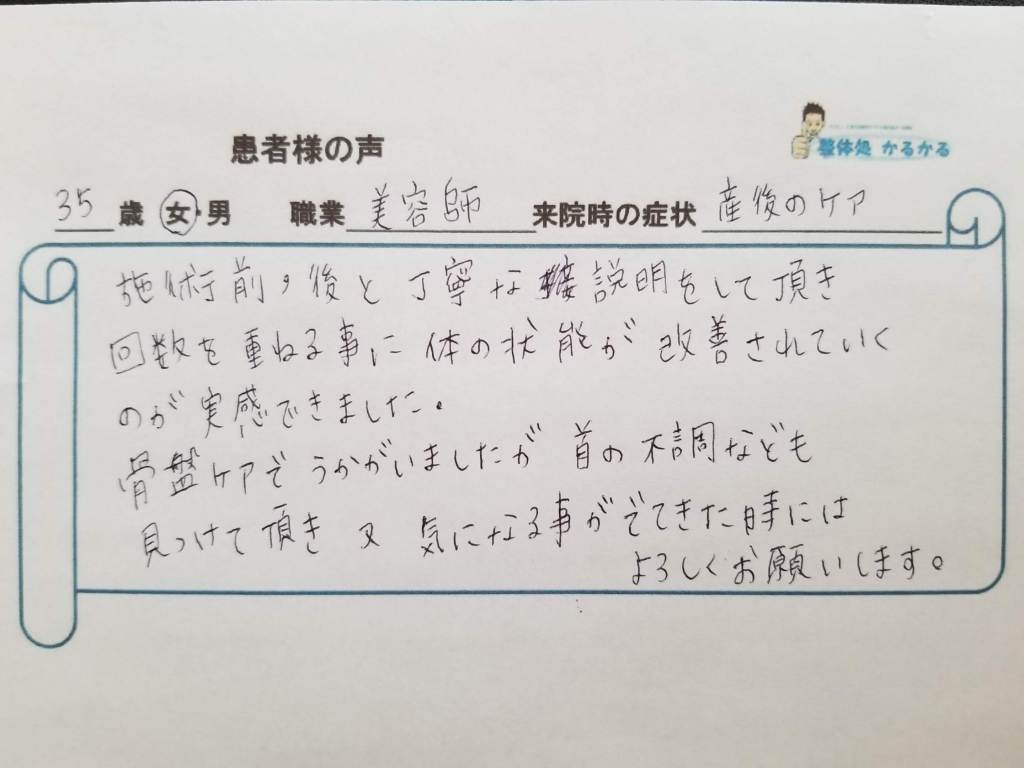 患者様の声
整体処 かるかる
35 歳 女・男 職業 美容師 来院時の症状 産後のケア
施術前，後と丁寧な説明をして頂き
回数を重ねる事に体の状態が改善されていく
のが実感できました。
骨盤ケアでうかがいましたが首の不調なども
見つけて頂き 又 気になる事がでてきた時には
よろしくお願いします。